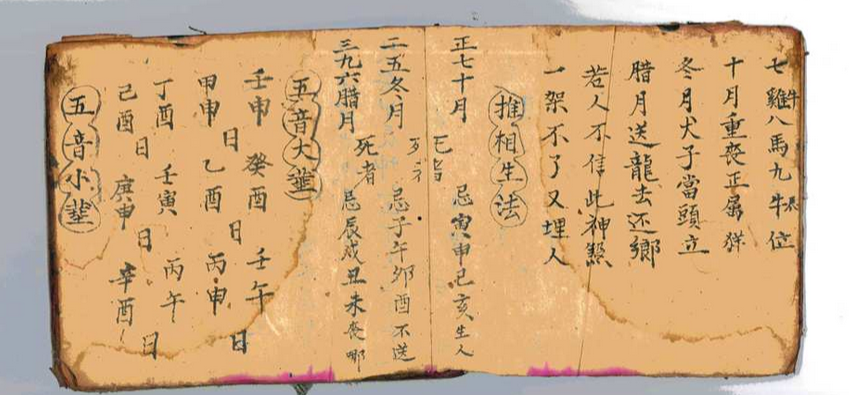 七雞八馬九牛位
十月重喪正属猪
冬月犬子當頭立
腊月送龍去还鄉
若人不信此神煞
一架不了又埋人
推相生法
正七十月 死者 忌寅申己亥生人
二五冬月 死者 忌子午卯酉不送
三九六腊月 死者 忌辰戍丑未喪
五音大葬
壬申 癸酉 壬午日
甲申日 乙酉日 丙申
丁酉 壬寅 丙午
己酉日 庚申日 辛酉日
五音小葬